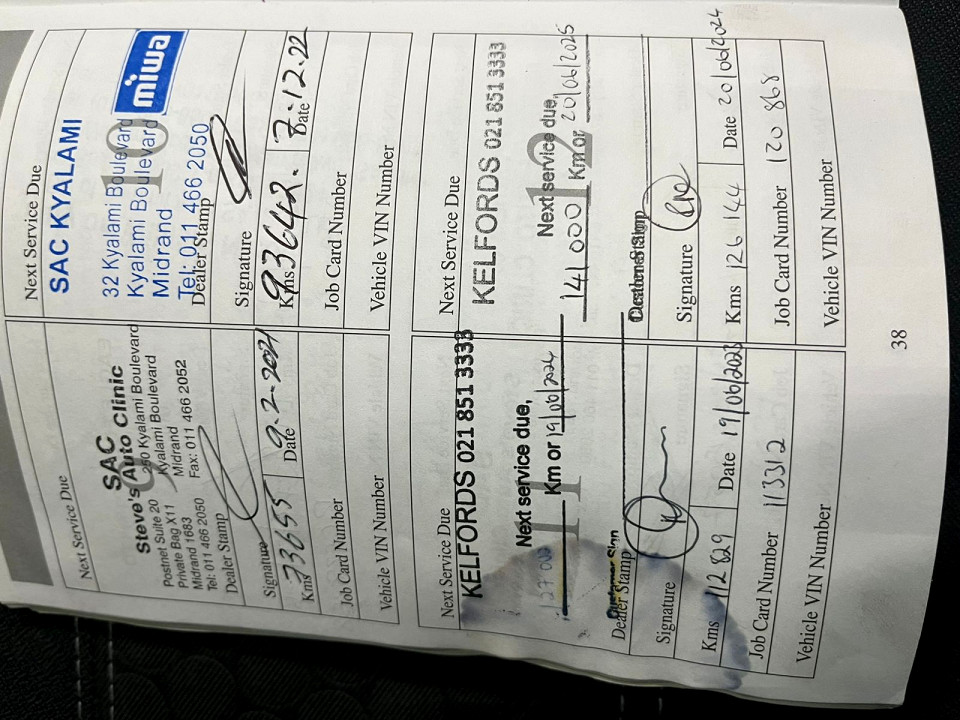 Next Service Due
SAC
Steve's Auto Clinic
Postnet Suite 20
Private Bag X11
Midrand 1683
Tel: 011 466 2050
Kyalami Boulevard
Kyalami Boulevard
Midrand
Fax: 011 466 2052
Dealer Stamp
Signature
Kms 73655 Date 9.2.2021
Job Card Number
Vehicle VIN Number
Next Service Due
10
SAC KYALAMI
32 Kyalami Boulevard
Kyalami Boulevard
Midrand
Tel: 011 466 2050
miwa
Dealer Stamp
Signature
Kms 93642. Date 7.12.22
Job Card Number
Vehicle VIN Number
Next Service Due
11
KELFORDS 021 851 3333
Next service due,
127 000 Km or 19/06/2024
Dealer Stamp
Signature
Kms 112 829 Date 19/06/2023
Job Card Number 113312
Vehicle VIN Number
Next Service Due
12
KELFORDS 021 851 3333
Next service due,
141 000 Km or 20/06/2025
Signature
Kms 126 144 Date 20/06/2024
Job Card Number 120 868
Vehicle VIN Number
38